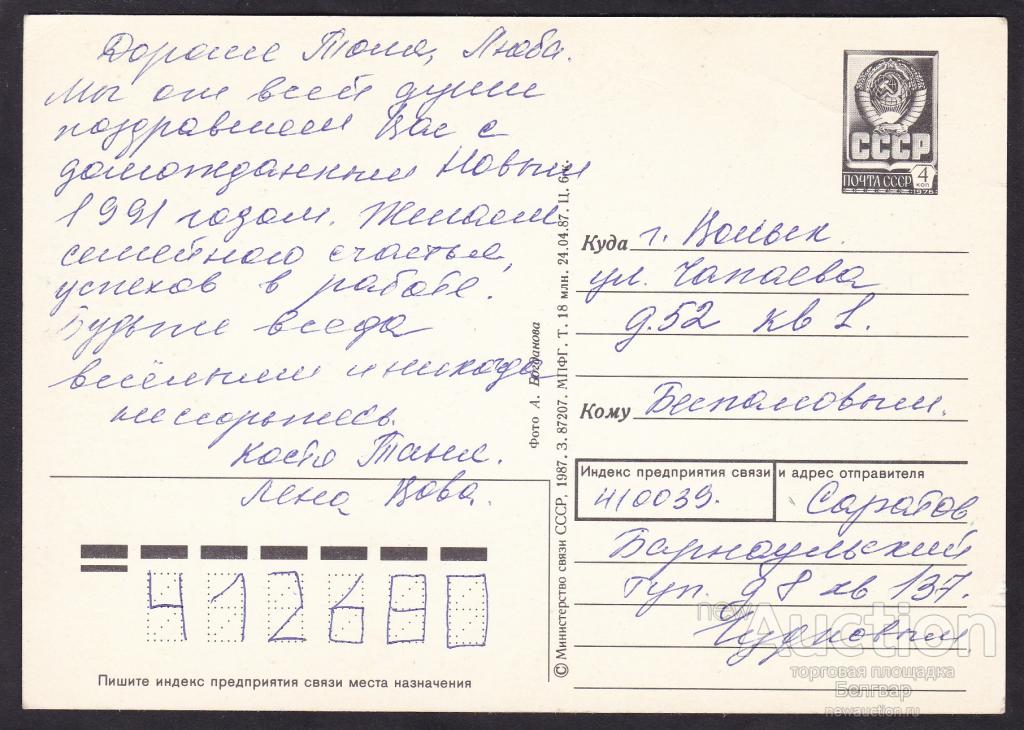 Дорогие Толя, Люба.
Мы от всей души
поздравляем Вас с
долгожданным Новым
1991 годом. Желаем
семейного счастья,
успехов в работе.
Будьте всегда
весёлыми и никогда
не ссорьтесь.
Костя Таня.
Лена, Вова.
Пишите индекс предприятия связи места назначения
412680
Фото А. Богданова
© Министерство связи СССР, 1987. З. 87207. МПФГ. Т. 18 млн. 24.04.87. Ц. 6 к.
СССР
ПОЧТА СССР 4 КОП
1976
Куда г. Вольск.
ул. Чапаева
д. 52 кв 1.
Кому Беспаловым.
Индекс предприятия связи и адрес отправителя
410039. Саратов
Барнаульский
туп. д 8 кв 137.
Чудновым
newAuction
торговая площадка
Белгвар
newauction.ru